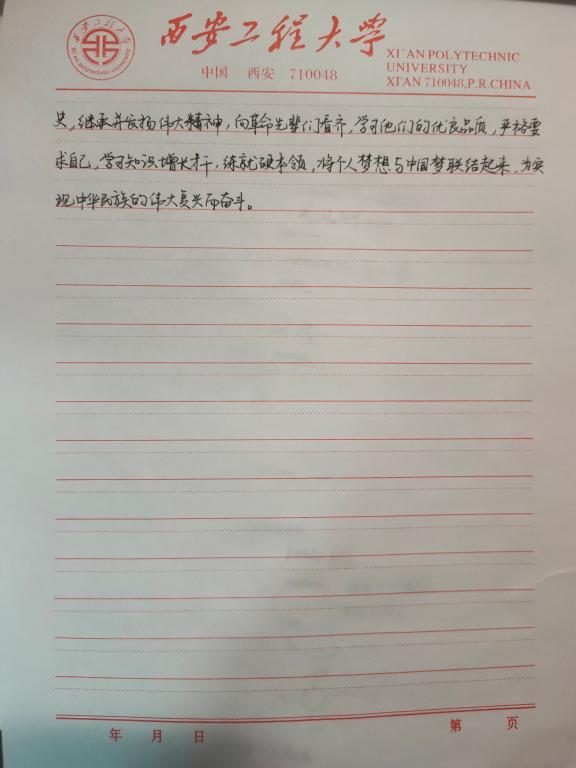 西安工程大学
Xi'an polytechnic university
西安工程大学
XI'AN POLYTECHNIC
UNIVERSITY
中国 西安 710048
XI'AN 710048,P.R.CHINA
史，继承并发扬伟大精神，向革命先辈们看齐，学习他们的优良品质，严格要
求自己，学习知识增长才干，练就硬本领，将个人梦想与中国梦联结起来，为实
现中华民族的伟大复兴而奋斗。
年 月 日
第 页